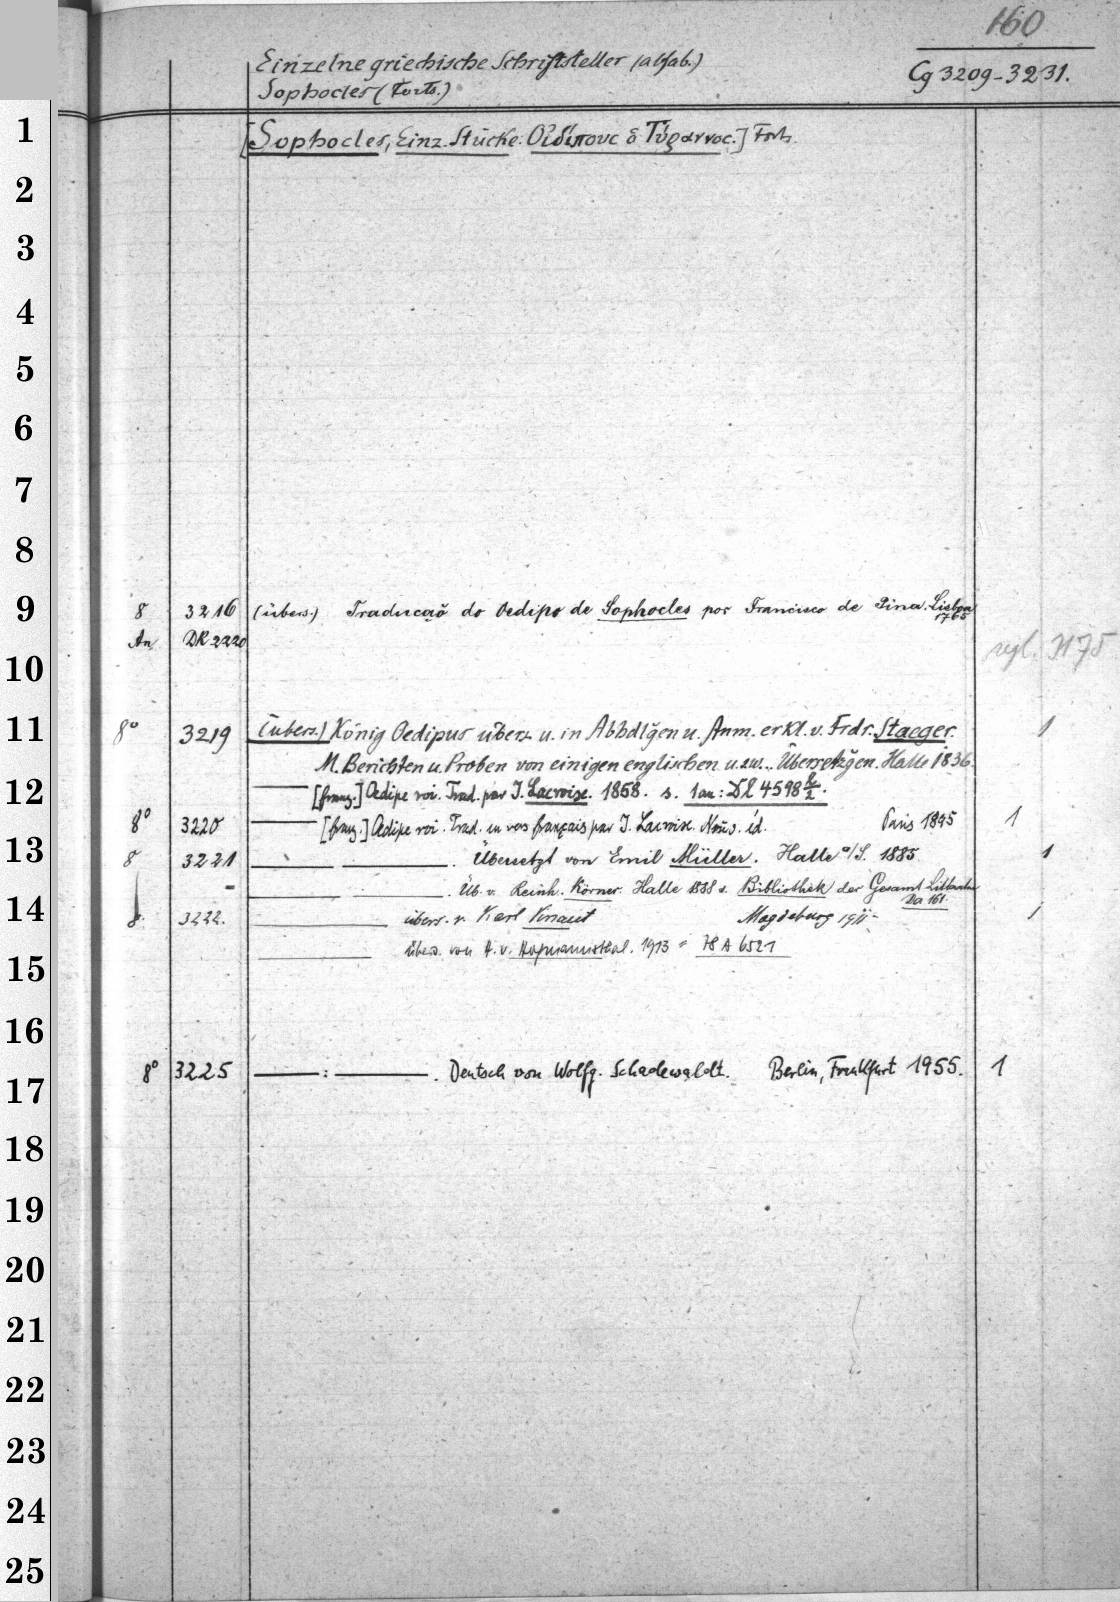 160
Einzelne griechische Schriftsteller (alfab.)
Cg 3209-3231.
Sophocles (Forts.)
1
[Sophocles, Einz. Stücke: Οἰδίπους ὁ Τύραννος.] Forts.
2
3
4
5
6
7
8
9
8 3216 (übers.) Traducaõ do Oedipo de Sophocles por Francisco de Pina. Lisboa 1765
An DR 2220
vgl. 3175
10
11
8° 3219 (übers.) König Oedipus übers. u. in Abhdlg̃en u. Anm. erkl. v. Frdr. Staeger. 1
M. Berichten u. Proben von einigen englischen u. Übersetzg̃en. Halle 1836.
12
[franz.] Oedipe roi. Trad. par J. Lacroix. 1858. s. 1 an: Dl 4598
8° 3220 [franz.] Oedipe roi. Trad. en vers français par J. Lacroix. Nouv. éd. Paris 1895 1
13
8 3221 Übersetzt von Emil Müller. Halle a/S. 1885 1
Üb. v. Reinh. Körner. Halle 1888 s. Bibliothek der Gesamt Litteratur
Da 161.
14
8. 3222. übers. v. Karl Magdeburg 1911 1
übers. von H. v. Hofmannsthal. 1913 = 78 A 6521
15
16
8° 3225 : . Deutsch von Wolfg. Schadewaldt. Berlin, Frankfurt 1955. 1
17
18
19
20
21
22
23
24
25